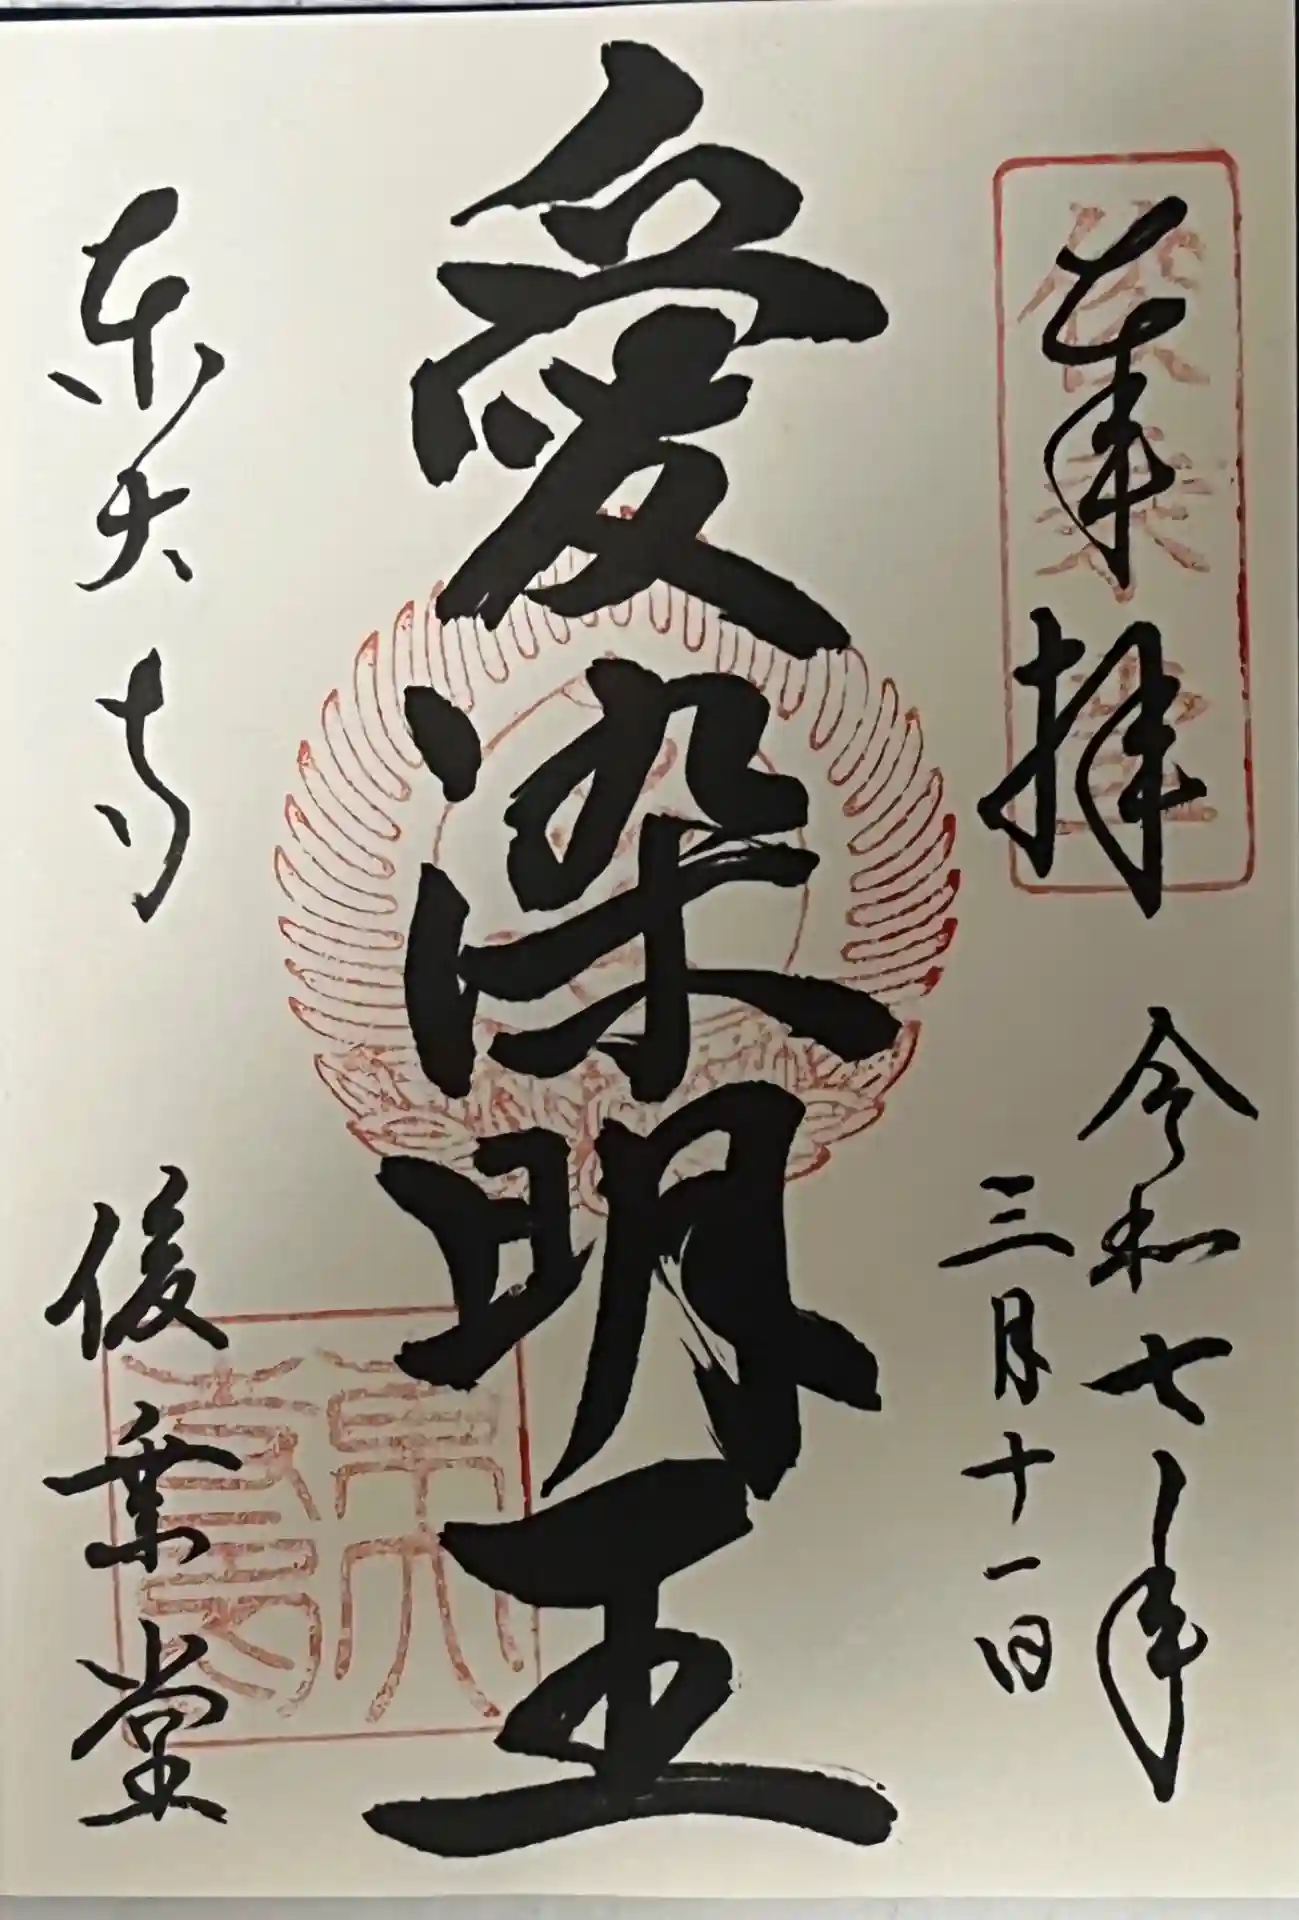 奉拝
俊乗堂
令和七年
三月十一日
愛染明王
東大寺
俊乗堂